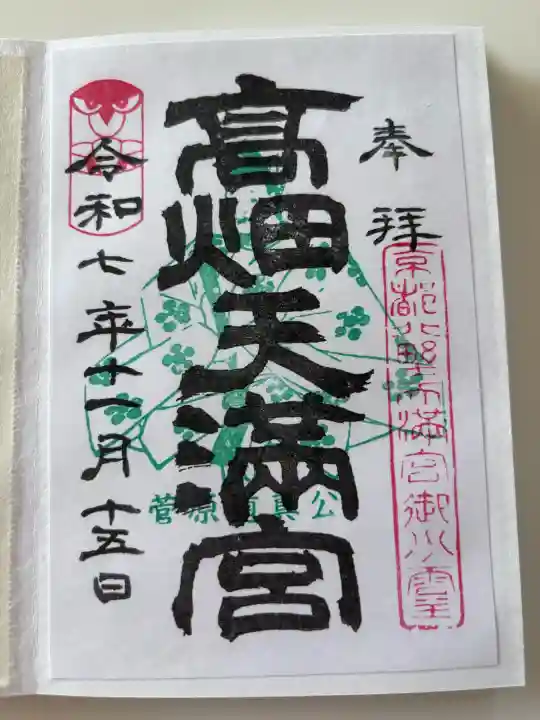 奉拝
京都北野天満宮御分霊
髙畑天満宮
菅原道真公
令和七年十一月十五日